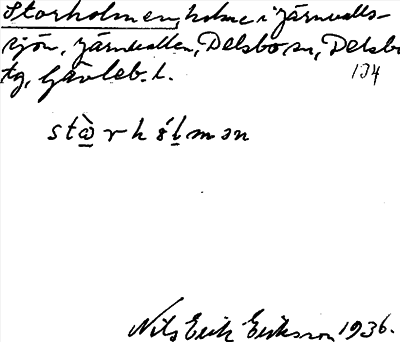 Storholmen, holme i Järnvalls-
sjön, Järnvallen, Delsbo sn, Delsbo
tg, Gävleb. l.
134
stàrhólmən
Nils Erik Eriksson 1936.